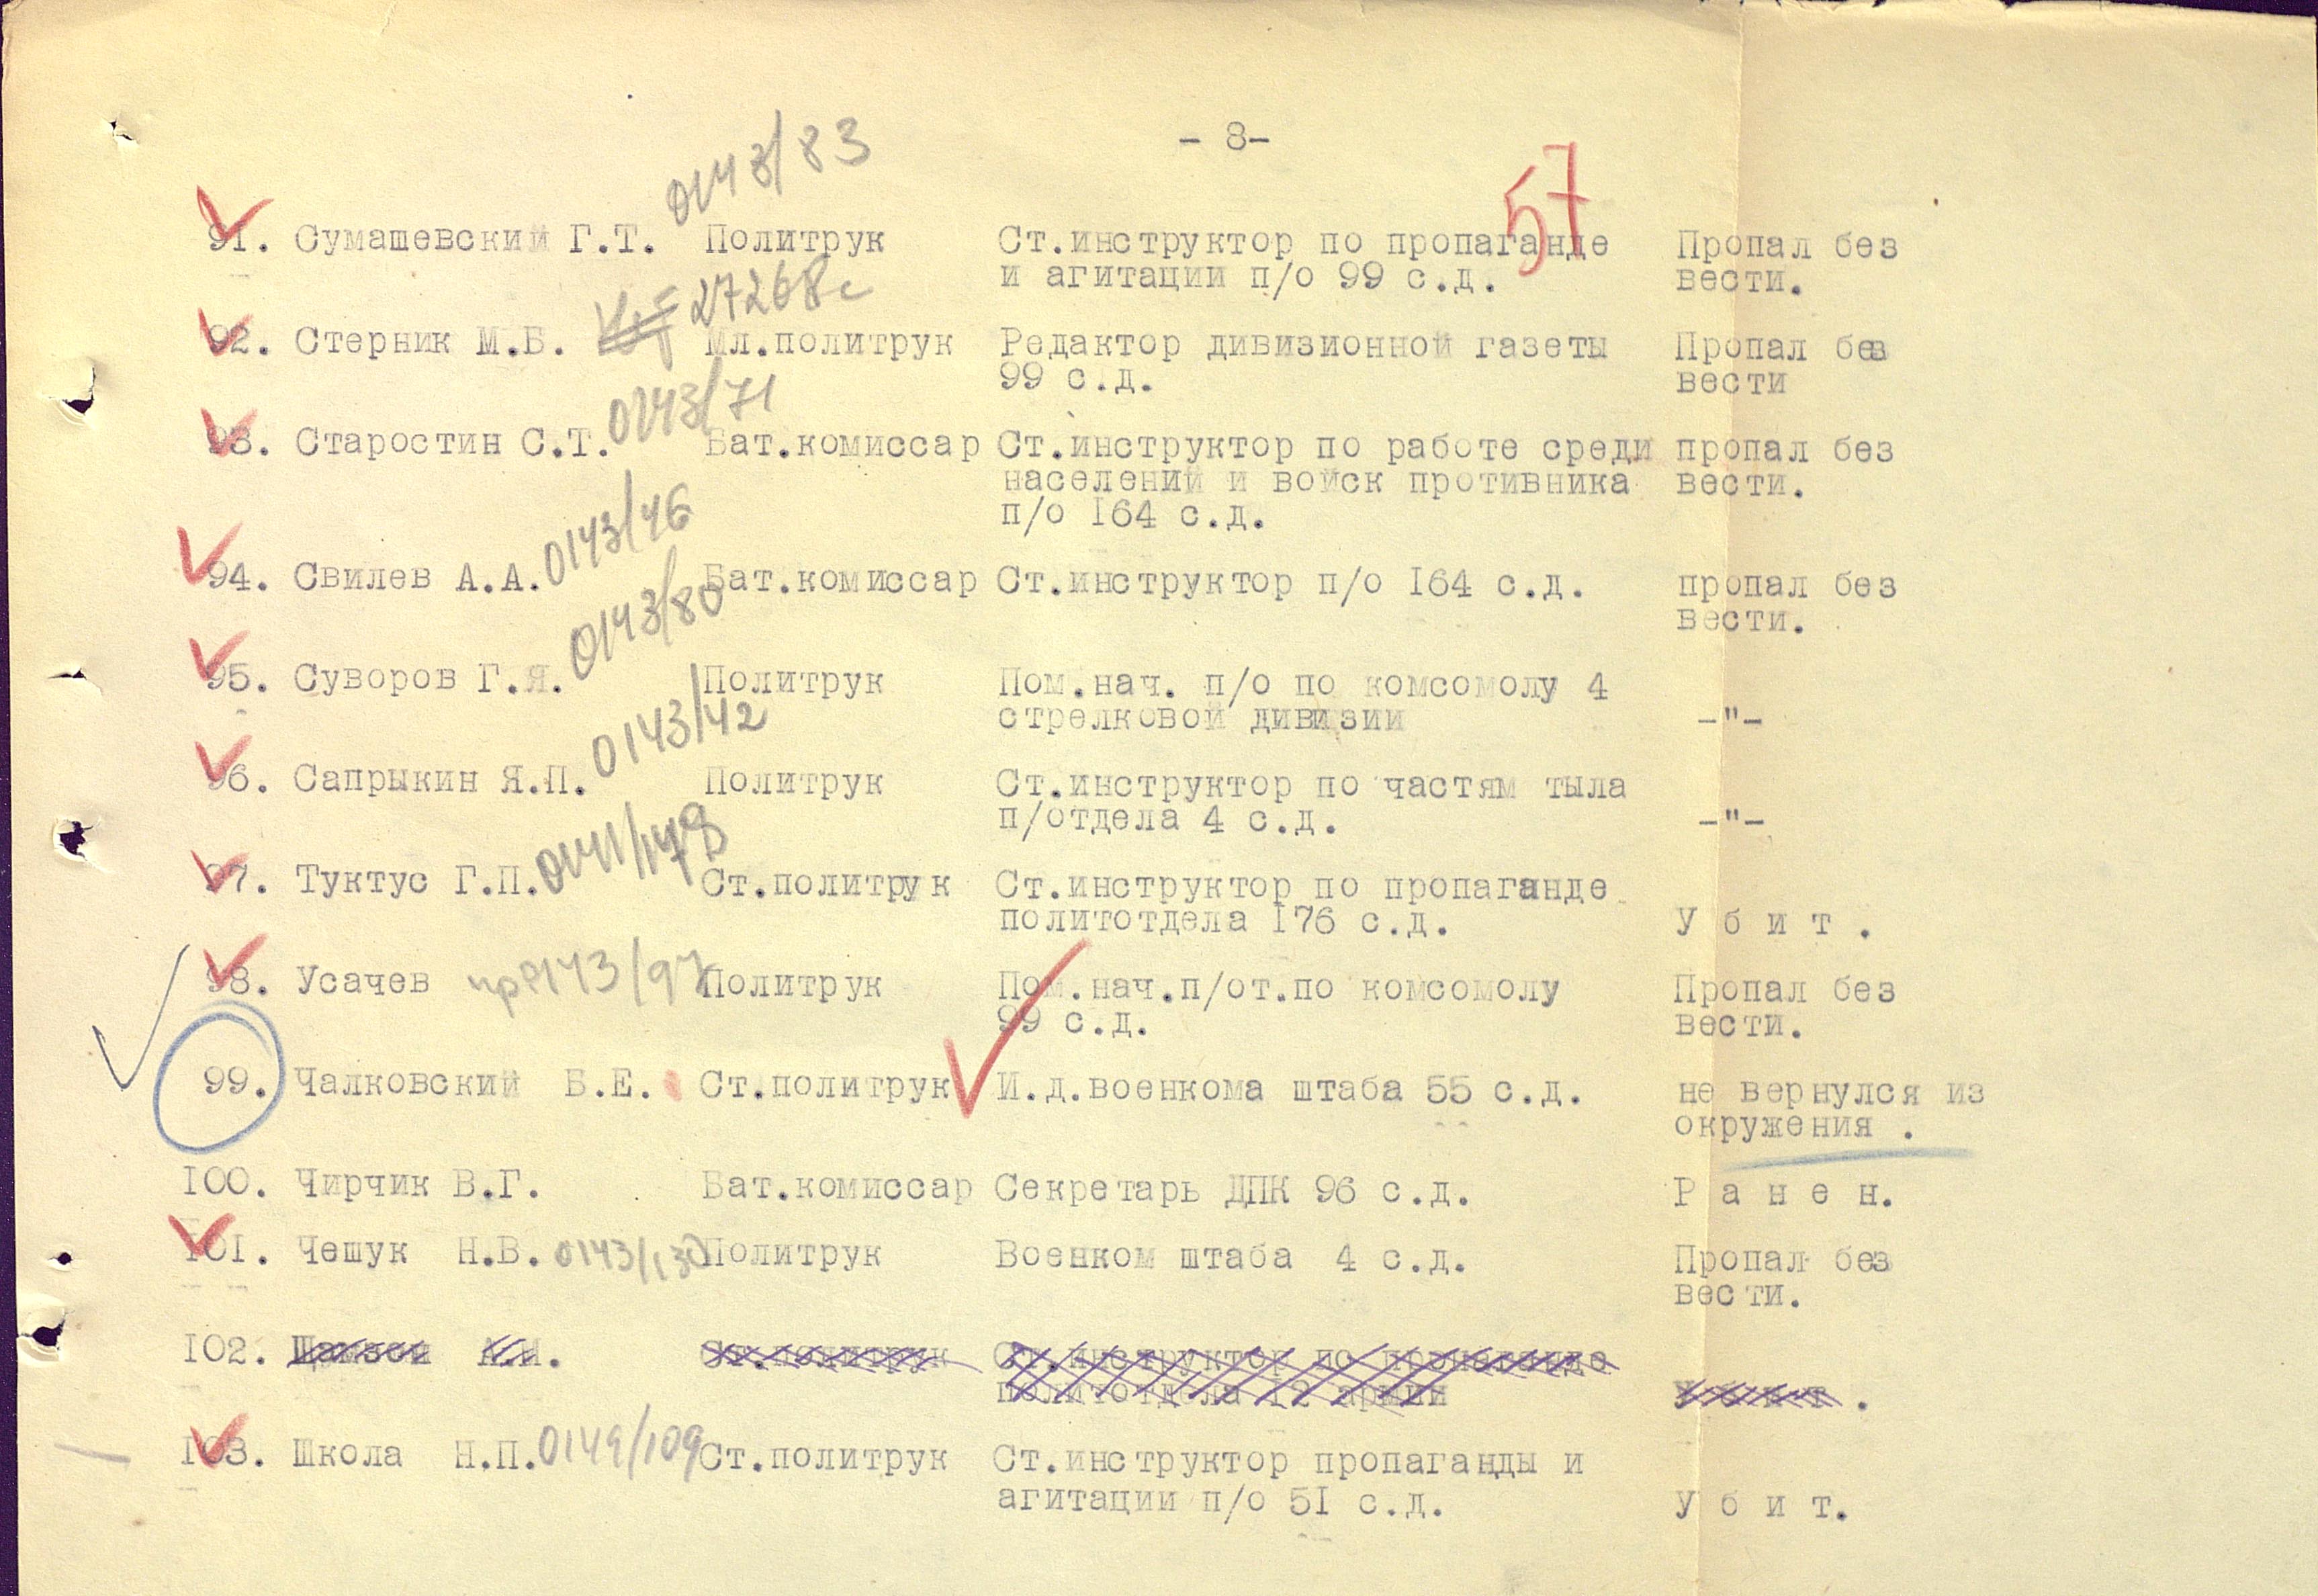 - 8-
57
0143/83
91. Сумашевский Г.Т. Политрук Ст.инструктор по пропаганде Пропал без
и агитации п/о 99 с.д. вести.
27268с
92. Стерник М.Б. Мл.политрук Редактор дивизионной газеты Пропал без
99 с.д. вести
0143/71
93. Старостин С.Т. Бат.комиссар Ст.инструктор по работе среди пропал без
населений и войск противника вести.
п/о 164 с.д.
0143/46
94. Свилев А.А. Бат.комиссар Ст.инструктор п/о 164 с.д. пропал без
вести.
0143/80
95. Суворов Г.Я. Политрук Пом.нач. п/о по комсомолу 4
стрелковой дивизии -"-
0143/42
96. Сапрыкин Я.П. Политрук Ст.инструктор по частям тыла
п/отдела 4 с.д. -"-
97. Туктус Г.П. Ст.политрук Ст.инструктор по пропаганде
политотдела 176 с.д. У б и т .
98. Усачев Политрук Пом.нач.п/от.по комсомолу Пропал без
99 с.д. вести.
99. Чалковский Б.Е. Ст.политрук И.д.военкома штаба 55 с.д. не вернулся из
окружения .
100. Чирчик В.Г. Бат.комиссар Секретарь ДПК 96 с.д. Р а н е н.
101. Чешук Н.В. 0143/130 Политрук Военком штаба 4 с.д. Пропал без
вести.
102. Ст.политрук Ст.инструктор по пропаганде
политотдела 12 армии У б и т .
103. Школа Н.П. 0149/109 Ст.политрук Ст.инструктор пропаганды и
агитации п/о 51 с.д. У б и т.